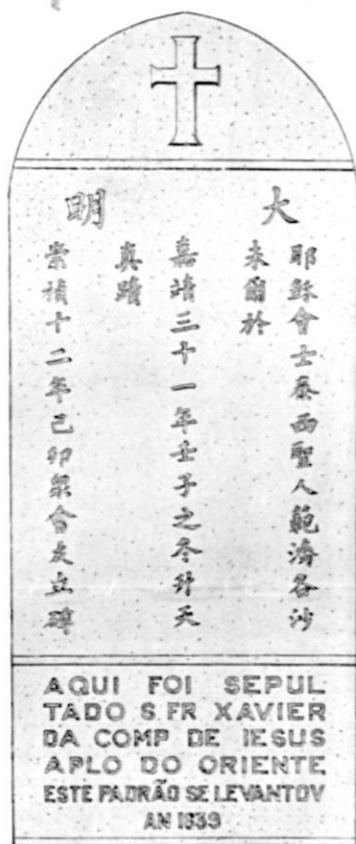 大明
耶穌會士泰西聖人範濟各沙
未爾於
嘉靖三十一年壬子之冬升天
真蹟
崇禎十二年己卯衆會友立碑
AQUI FOI SEPUL
TADO S. FR XAVIER
DA COMP DE IESUS
APLO DO ORIENTE
ESTE PADRÃO SE LEVANTOV
AN 1639